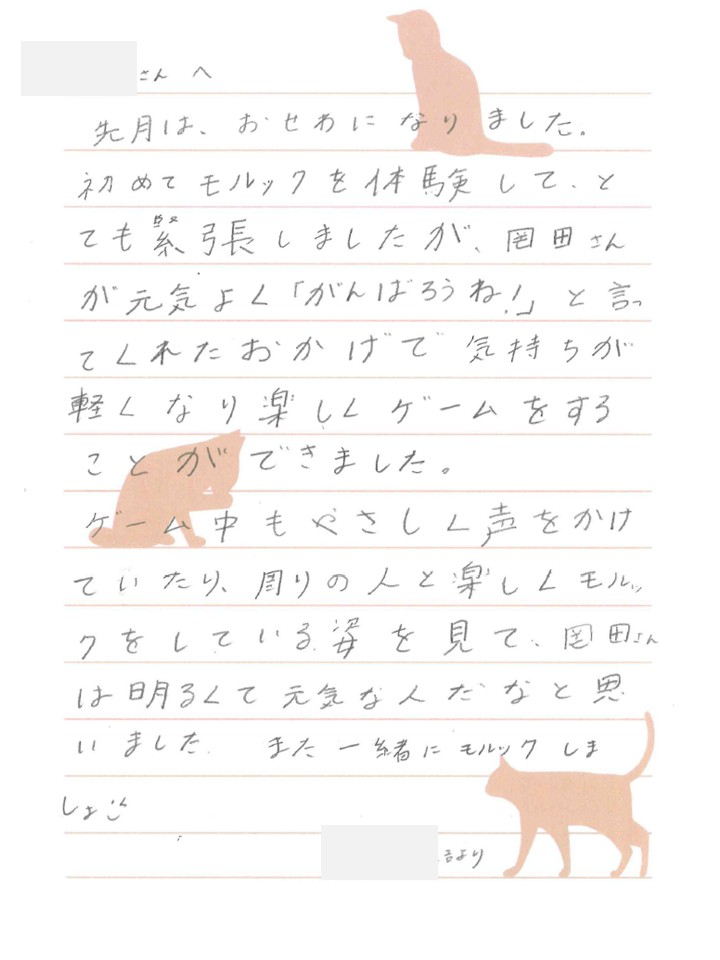 さんへ
先月は、おせわになりました。
初めてモルックを体験して、と
ても緊張しましたが、岡田さん
が元気よく「がんばろうね!」と言っ
てくれたおかげで気持ちが
軽くなり楽しくゲームをする
ことができました。
ゲーム中もやさしく声をかけ
ていたり、周りの人と楽しくモルッ
クをしている姿を見て、岡田さん
は明るくて元気な人だなと思
いました。 また一緒にモルックしま
しょう
より